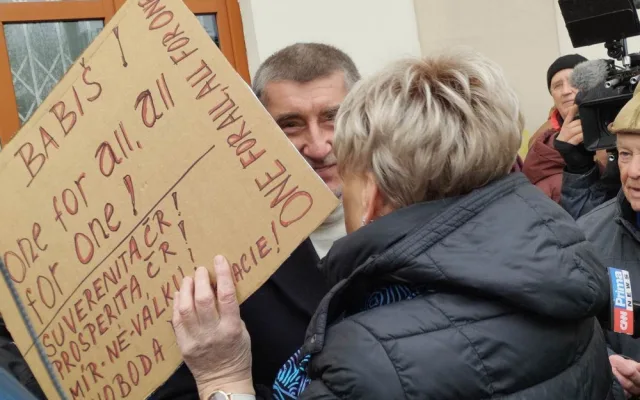 BABIŠ!
one for all, all
for one!
ONE FOR ALL, ALL FOR ONE
ONE!
SUVERENITA ČR!
PROSPERITA ČR!
MÍR-NE-VÁLKU!
SVOBODA
ACIE!
CNN Prima
NEWS